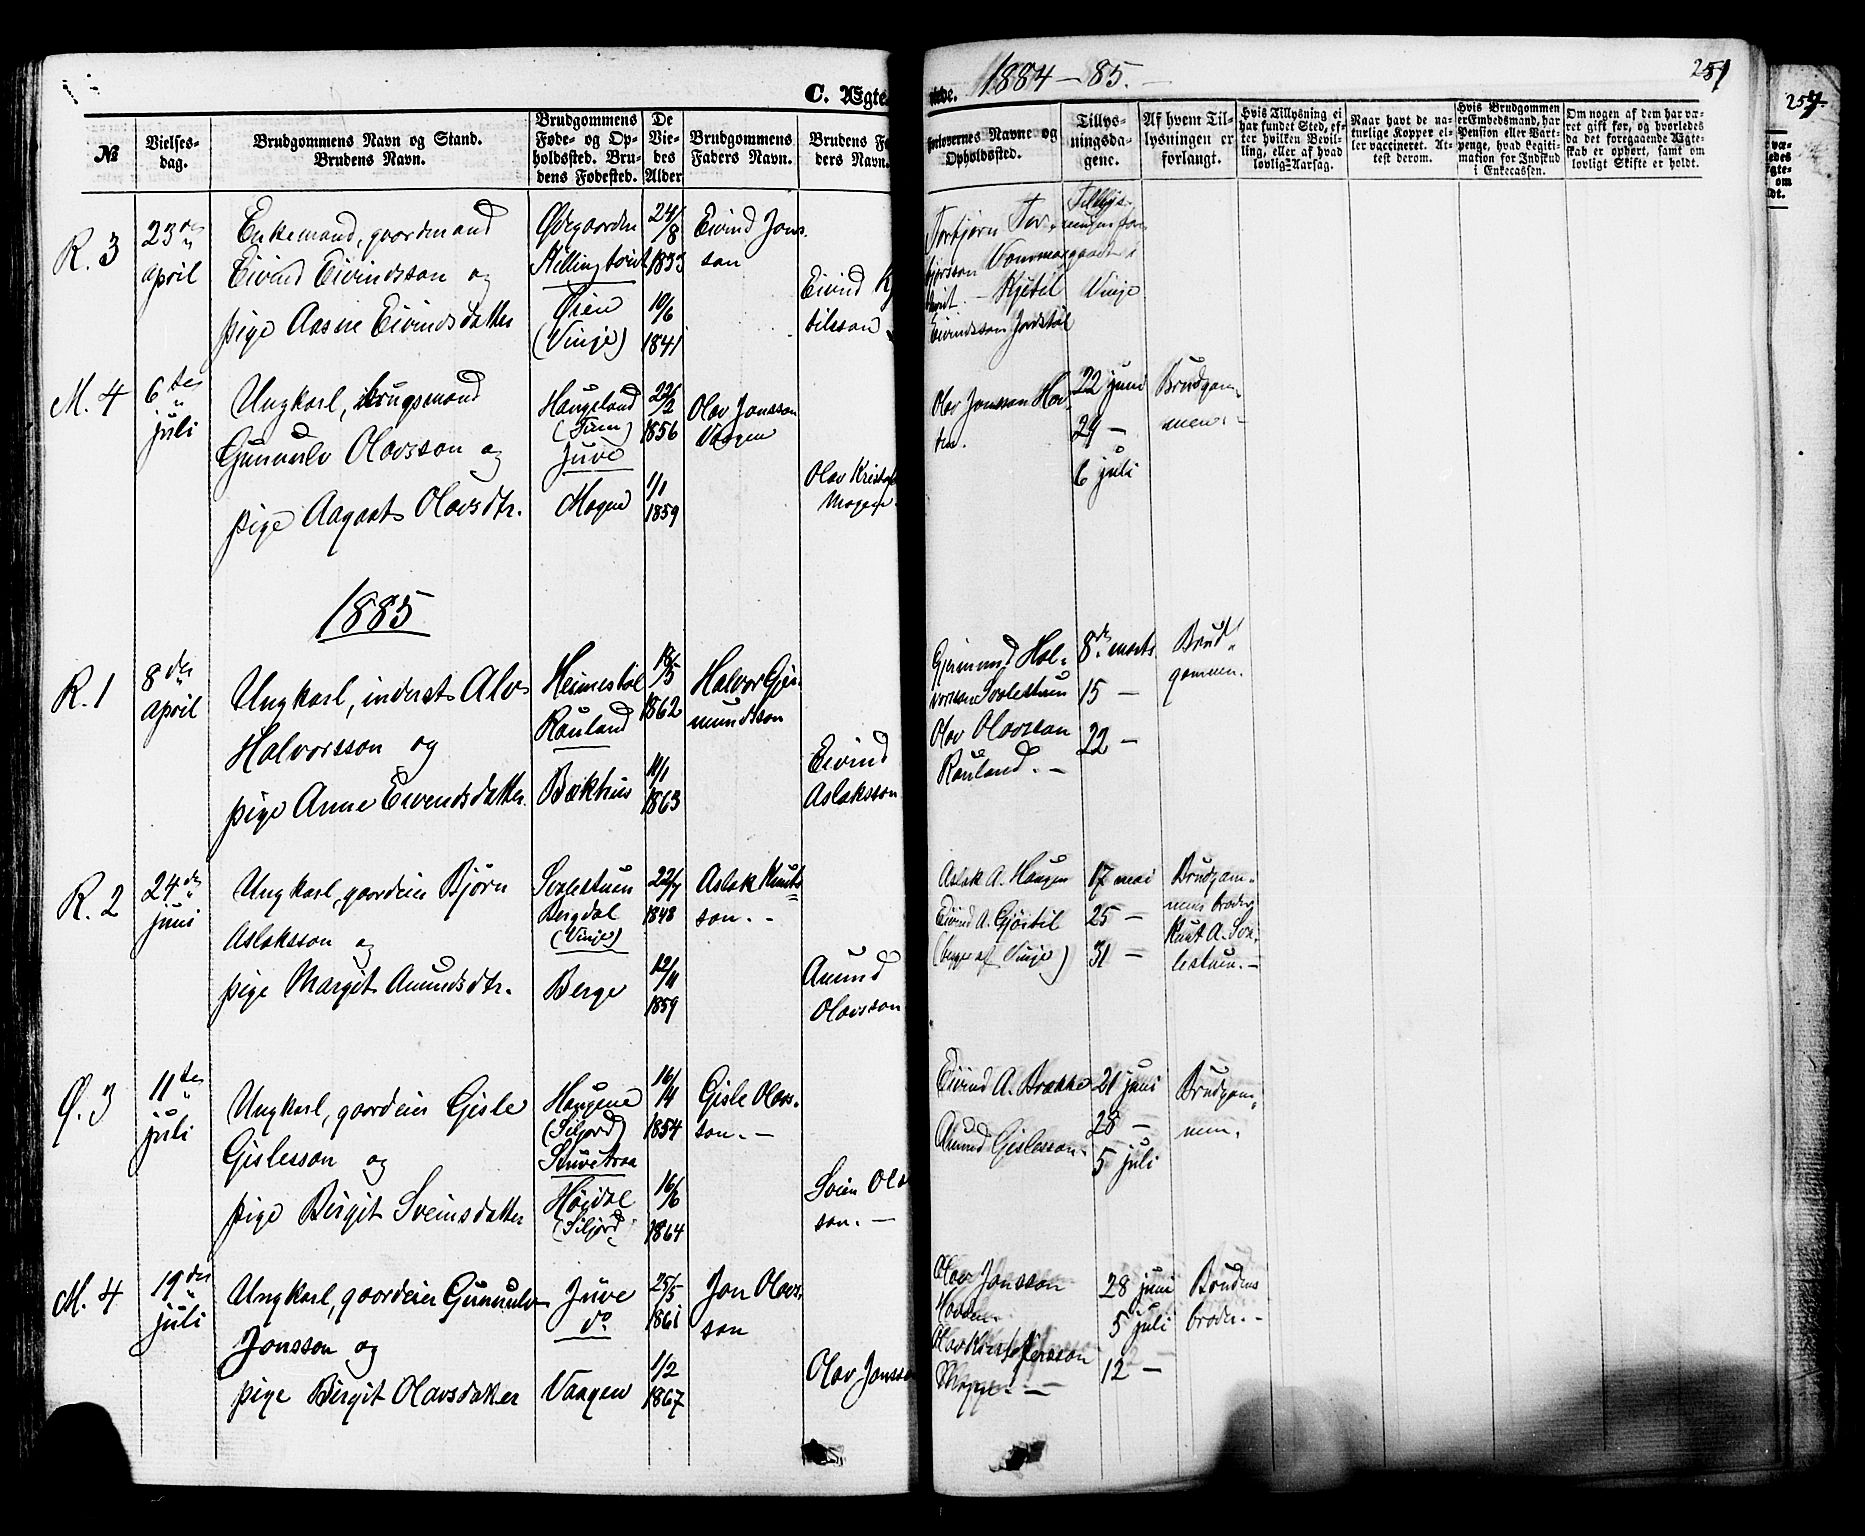 C. Ægte
skabe. 1884 – 85. –
251
257
№
Vielses-
dag.
Brudgommens Navn og Stand.
Brudens Navn.
Brudgommens
Føde- og Op-
holdssted. Bru-
dens Fødested.
De
Vie-
des
Alder
Brudgommens
Faders Navn.
Brudens Fa-
ders Navn.
Forlovernes Navne og
Opholdssted.
Tillys-
ningsda-
gene.
Af hvem Til-
lysningen er
forlangt.
Hvis Tillysning ei
har fundet Sted, ef-
ter hvilken Bevil-
ling, eller af hvad
lovlig Aarsag.
Naar havt de na-
turlige Kopper el-
ler vaccineret. At-
test derom.
Hvis Brudgommen
er Embedsmand, har
Pension eller Vart-
penge, hvad Legiti-
mation for Indskud
i Enkecassen.
Om nogen af dem har va-
ret gift før, og hvorledes
da det foregaaende Ægte-
skab er ophørt, samt om
lovligt Skifte er holdt.
R. 3
23de
april
Enkemand, gaardmand
Eivind Eivindsson og
pige Aasne Eivindsdatter
Ødegaarden
Øien
(Vinje)
24/8
1833
10/6
1841
Eivind Jons-
son
Eivind Kj
tilsson
Torbjørn Tor-
bjørsson
Kjetil
Eivindsson Jordstøl
Tillys-
Vinje
M. 4
6te
juli
Ungkarl, brugsmand
Gunnulv Olavsson og
pige Aagaat Olavsdtr.
Haugeland
Juve
Mogen
22/2
1856
1/1
1859
Olav Jonsson
Vaagen
Olav Kristof
Mogen
Olav Jonsson Hov-
den.
22 juni
29 –
6 juli
Brudgom-
men. –
1885
R. 1
8de
april
Ungkarl, inderst Alv
Halvorsson og
pige Anne Eivindsdatter
Heimestøl
Rauland
Bækhus
18/5
1862
11/1
1863
Halvor Gjer-
mundsson
Eivind
Aslaksson
Gjermund Hal-
vorsson Svalestuen
Olav Olavsson
Rauland. –
8de marts
15 –
22 –
Brud-
gommen.
R. 2
24de
juni
Ungkarl, gaardeier Bjørn
Aslaksson og
pige Margit Amundsdtr.
Svalestuen
Bergdal
(Vinje)
Berge
22/7
1848
12/11
1859
Aslak Knuts-
son. –
Amund
Olavsson
Aslak A. Haugen
Eivind A. Gjøstil
(begge af Vinje)
17 mai
25 –
31 –
Brudgom-
mens broder
Knut A. Sva-
lestuen. –
Ø. 3
11te
juli
Ungkarl, gaardeier Gisle
Gislesson og
pige Birgit Sveinsdatter
Haugene
(Siljord)
Høidal
(Siljord)
16/4
1854
16/6
1864
Gisle Olavs-
son. –
Svein Olav
son. –
Eivind A. Brække
Amund Gislesson.
21 juni
28 –
5 juli
Brudgom-
men.
M. 4
19de
juli
Ungkarl, gaardeier Gunnulv
Jonsson og
pige Birgit Olavsdatter
Juve
do
Vaagen
25/5
1861
1/2
1867
Jon Olavs-
son
Olav Jonsson
Olav Jonsson
Hovden.
Olav Kristoffersson
Mogen. –
28 juni
5 juli
12 –
Brudens
broder. –